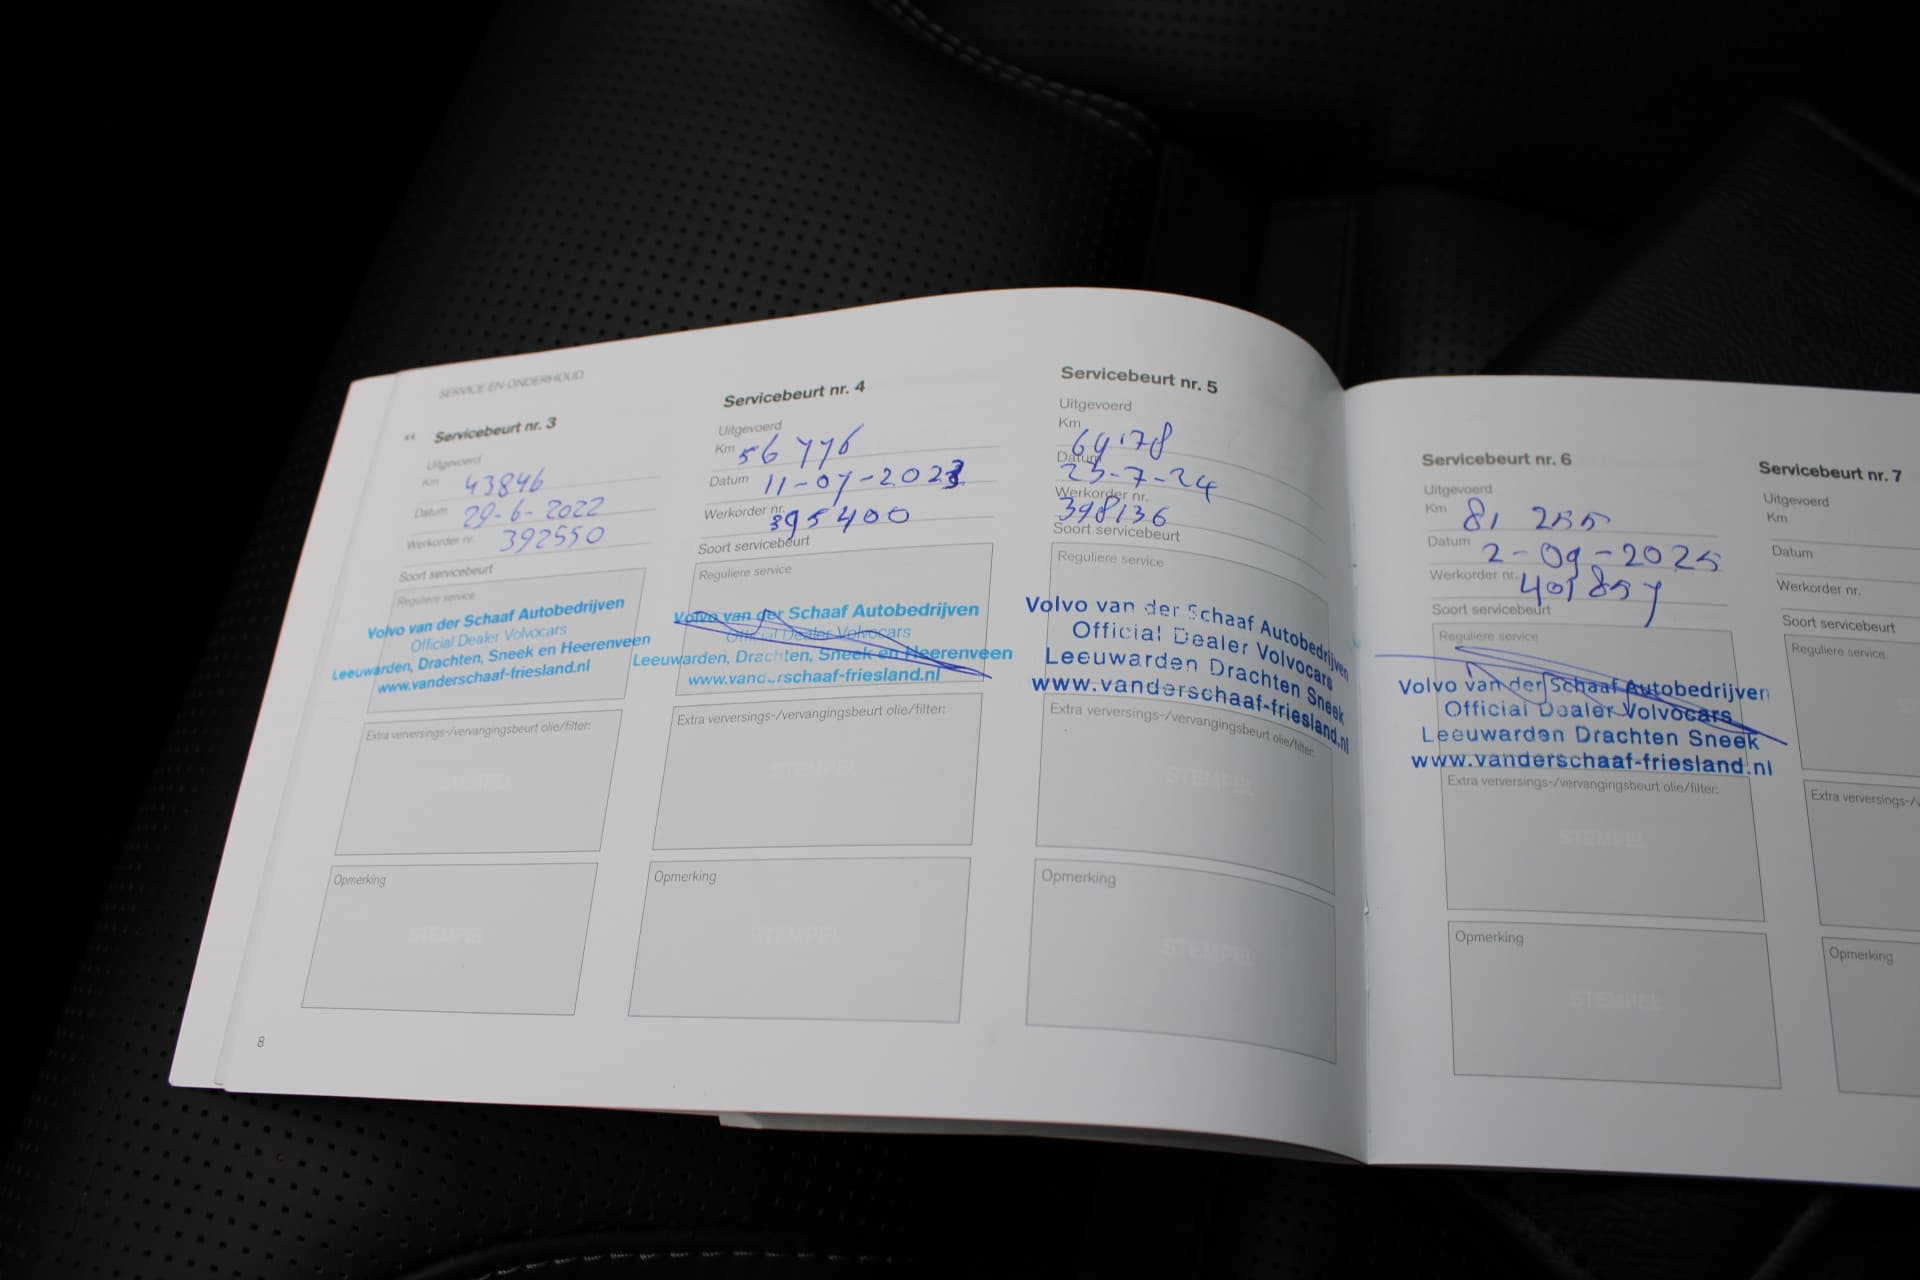 SERVICE EN ONDERHOUD
Servicebeurt nr. 3
Uitgevoerd
Km 43846
Datum 29-6-2022
Werkorder nr. 392550
Soort servicebeurt
Reguliere service
Volvo van der Schaaf Autobedrijven
Official Dealer Volvocars
Leeuwarden, Drachten, Sneek en Heerenveen
www.vanderschaaf-friesland.nl
Extra verversings-/vervangingsbeurt olie/filter:
STEMPEL
Opmerking
STEMPEL
8
Servicebeurt nr. 4
Uitgevoerd
Km 56 776
Datum 11-07-2023
Werkorder nr. 395400
Soort servicebeurt
Reguliere service
Volvo van der Schaaf Autobedrijven
Official Dealer Volvocars
Leeuwarden, Drachten, Sneek en Heerenveen
www.vanderschaaf-friesland.nl
Extra verversings-/vervangingsbeurt olie/filter:
STEMPEL
Opmerking
STEMPEL
Servicebeurt nr. 5
Uitgevoerd
Km
Datum 23-7-24
Werkorder nr.
398136
Soort servicebeurt
Reguliere service
Volvo van der Schaaf Autobedrijven
Official Dealer Volvocars
Leeuwarden Drachten Sneek
www.vanderschaaf-friesland.nl
Extra verversings-/vervangingsbeurt olie/filter:
STEMPEL
Opmerking
STEMPEL
Servicebeurt nr. 6
Uitgevoerd
Km 81 255
Datum 2-09-2025
Werkorder nr. 401857
Soort servicebeurt
Reguliere service
Volvo van der Schaaf Autobedrijven
Official Dealer Volvocars
Leeuwarden Drachten Sneek
www.vanderschaaf-friesland.nl
Extra verversings-/vervangingsbeurt olie/filter:
STEMPEL
Opmerking
STEMPEL
Servicebeurt nr. 7
Uitgevoerd
Km
Datum
Werkorder nr.
Soort servicebeurt
Reguliere service
Extra verversings-/v
Opmerking